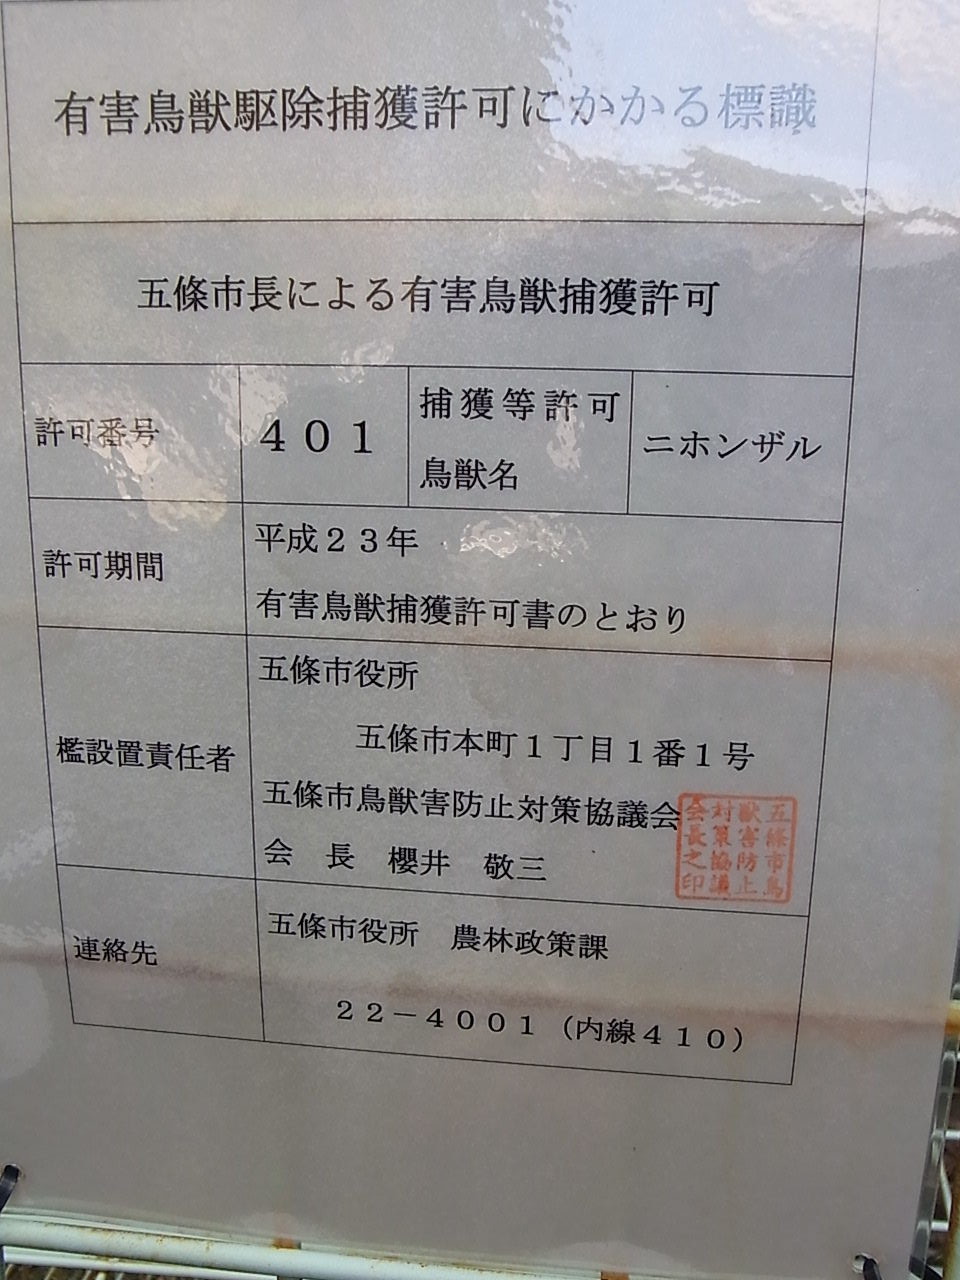 有害鳥獣駆除捕獲許可にかかる標識
五條市長による有害鳥獣捕獲許可
許可番号
４０１
捕獲等許可
鳥獣名
ニホンザル
許可期間
平成２３年
有害鳥獣捕獲許可書のとおり
檻設置責任者
五條市役所
五條市本町１丁目１番１号
五條市鳥獣害防止対策協議会
会　長　櫻井　敬三
五條市鳥
獣害防止
対策協議
会長之印
連絡先
五條市役所　農林政策課
２２－４００１（内線４１０）